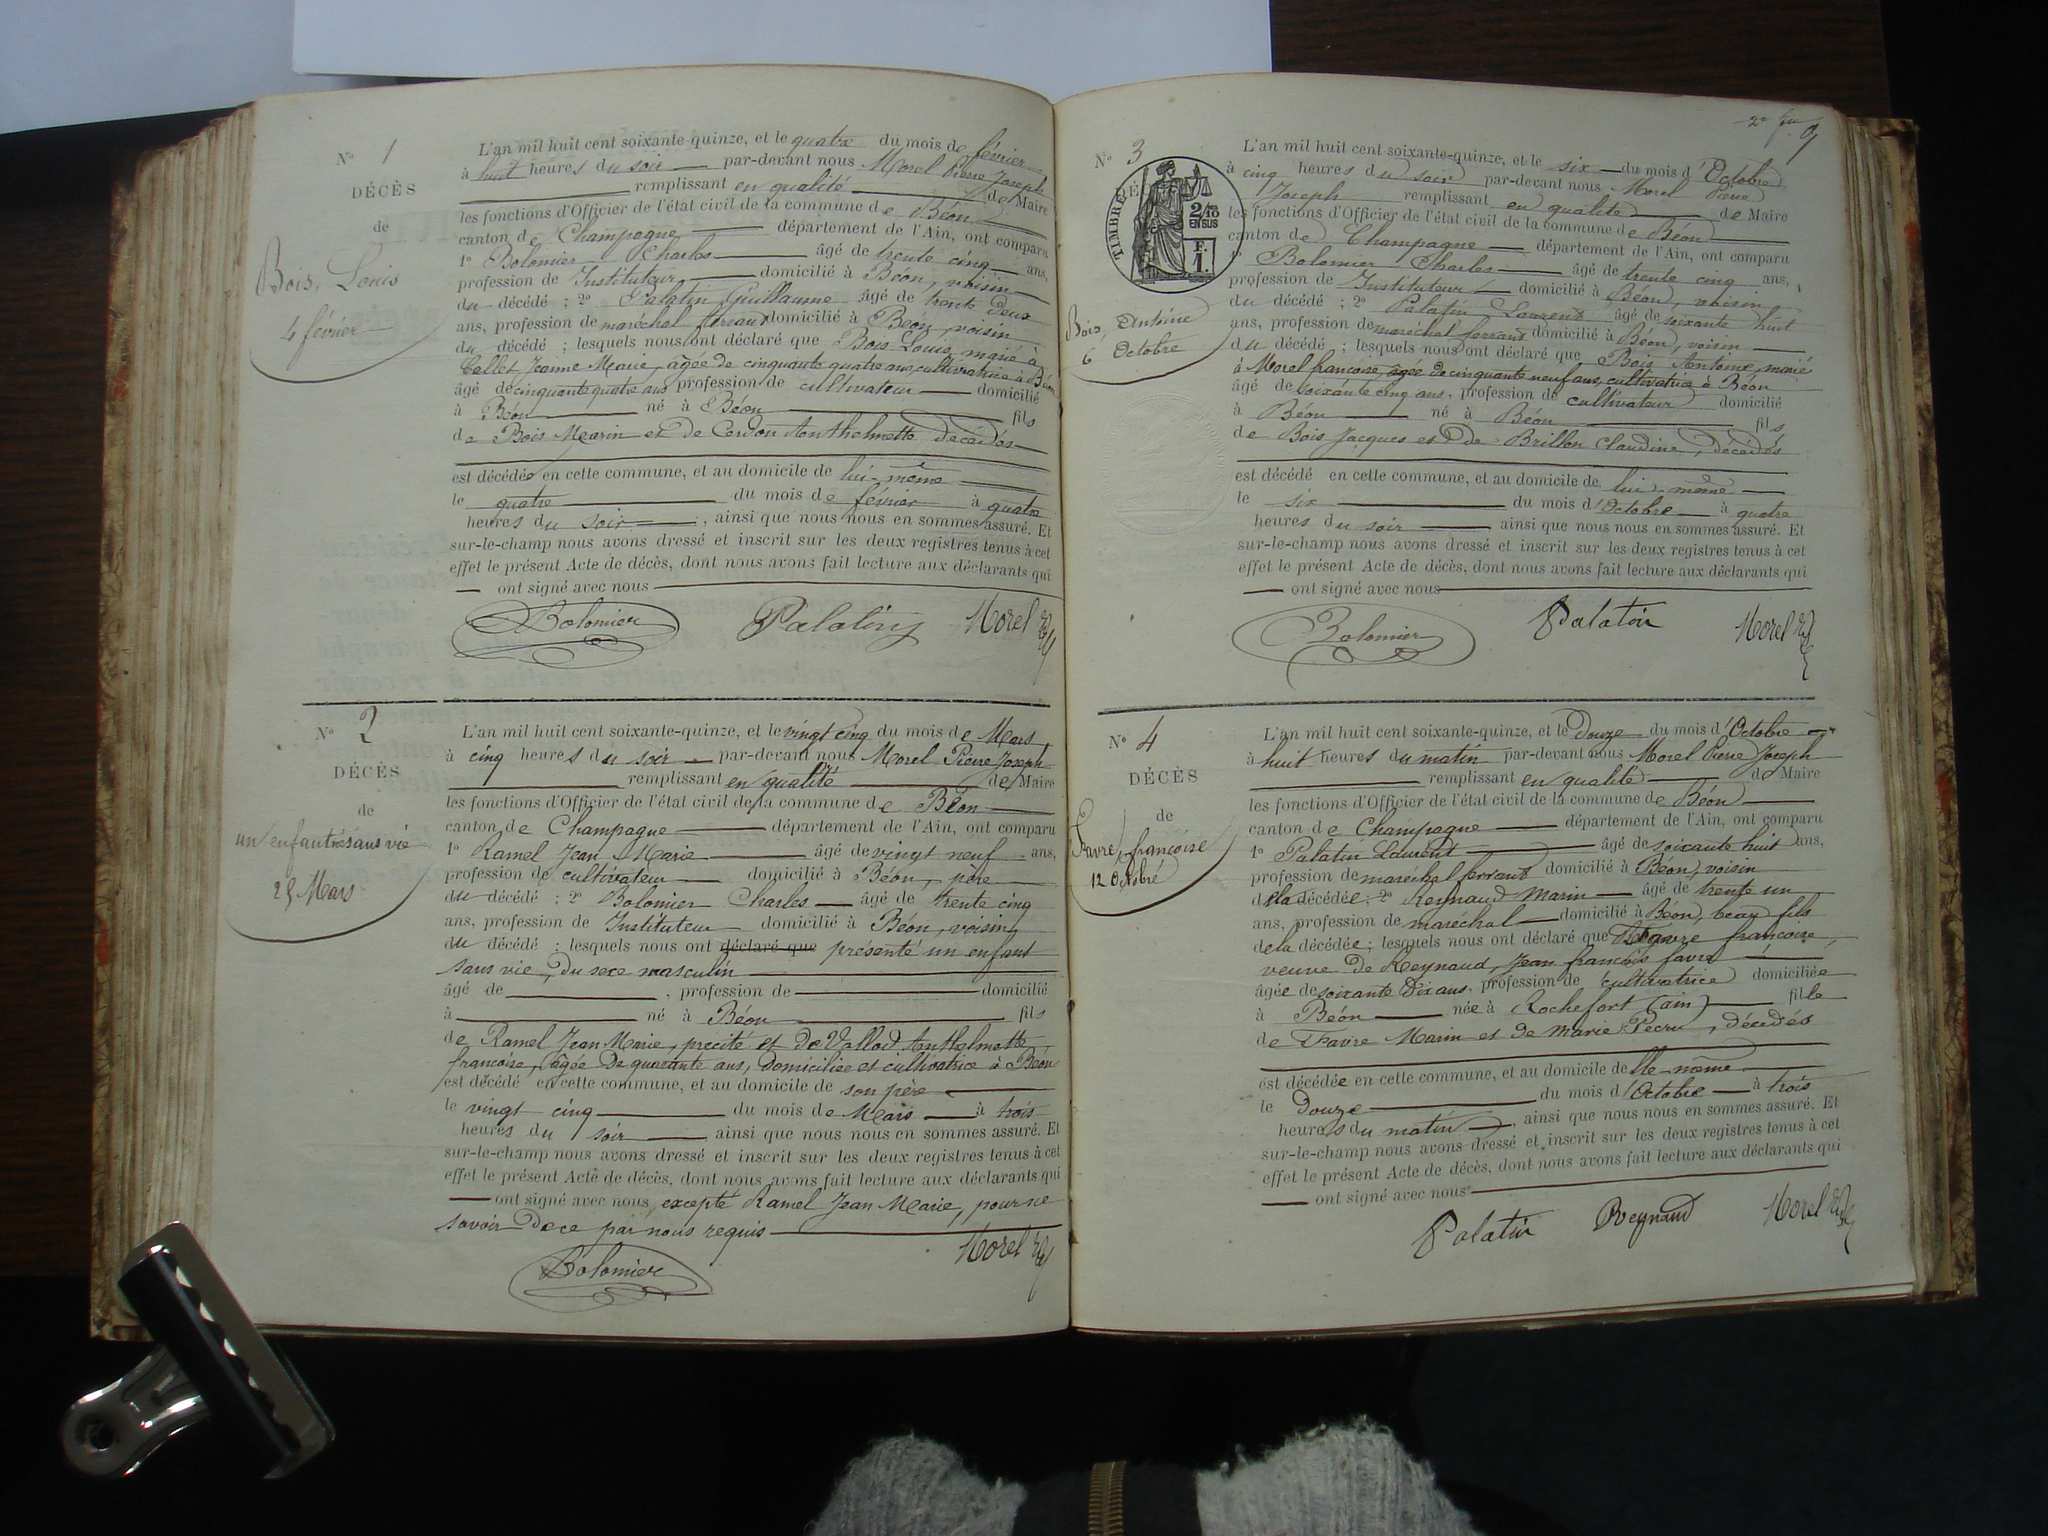 N° 1
DÉCÈS
de
Bois, Louis
4 février
L'an mil huit cent soixante-quinze, et le quatre du mois de février
à huit heures du soir par-devant nous Morel Pierre Joseph
remplissant en qualité de Maire
les fonctions d'Officier de l'état civil de la commune de Béon
canton de Champagne département de l'Ain, ont comparu
1° Bolomier Charles âgé de trente cinq ans,
profession de Instituteur domicilié à Béon, voisin
du décédé ; 2° Palatin Guillaume âgé de trente deux
ans, profession de maréchal ferrant domicilié à Béon, voisin
du décédé ; lesquels nous ont déclaré que Bois Louis, marié à
Collet Jeanne Marie, agée de cinquante quatre ans, cultivatrice à Béon
âgé de cinquante quatre ans profession de cultivateur domicilié
à Béon né à Béon fils
de Bois Marin et de Cerdon Anthelmette décédés
est décédé en cette commune, et au domicile de lui-même
le quatre du mois de février à quatre
heures du soir , ainsi que nous nous en sommes assuré. Et
sur-le-champ nous avons dressé et inscrit sur les deux registres tenus à cet
effet le présent Acte de décès, dont nous avons fait lecture aux déclarants qui
ont signé avec nous
Bolomier Palatin Morel
N° 2
DÉCÈS
de
un enfant sans vie
25 Mars
L'an mil huit cent soixante-quinze, et le vingt cinq du mois de Mars
à cinq heures du soir par-devant nous Morel Pierre Joseph
remplissant en qualité de Maire
les fonctions d'Officier de l'état civil de la commune de Béon
canton de Champagne département de l'Ain, ont comparu
1° Ramel Jean Marie âgé de vingt neuf ans,
profession de cultivateur domicilié à Béon, père
du décédé ; 2° Bolomier Charles âgé de trente cinq
ans, profession de Instituteur domicilié à Béon, voisin
du décédé ; lesquels nous ont déclaré que présenté un enfant
sans vie, du sexe masculin
âgé de , profession de domicilié
à né à Béon fils
de Ramel Jean Marie, precité et de Vallod Anthelmette
françoise, agée de quarante ans, domiciliée et cultivatrice à Béon
est décédé en cette commune, et au domicile de son père
le vingt cinq du mois de Mars à trois
heures du soir ainsi que nous nous en sommes assuré. Et
sur-le-champ nous avons dressé et inscrit sur les deux registres tenus à cet
effet le présent Acte de décès, dont nous avons fait lecture aux déclarants qui
ont signé avec nous, excepté Ramel Jean Marie, pour ne
savoir de ce par nous requis
Bolomier Morel
N° 3
TIMBRE
2/10
EN SUS
F.
1.
Bois Antoine
6 Octobre
L'an mil huit cent soixante-quinze, et le six du mois d'Octobre
à cinq heures du soir par-devant nous Morel Pierre
Joseph remplissant en qualité de Maire
les fonctions d'Officier de l'état civil de la commune de Béon
canton de Champagne département de l'Ain, ont comparu
1° Bolomier Charles âgé de trente cinq ans,
profession de Instituteur domicilié à Béon, voisin
du décédé ; 2° Palatin Laurent âgé de soixante huit
ans, profession de maréchal ferrant domicilié à Béon, voisin
du décédé ; lesquels nous ont déclaré que Bois Antoine, marié
à Morel françoise, agée de cinquante neuf ans, cultivatrice à Béon
âgé de soixante cinq ans, profession de cultivateur domicilié
à Béon né à Béon fils
de Bois Jacques et de Brillon Claudine, décédés
est décédé en cette commune, et au domicile de lui-même
le six du mois d'Octobre à quatre
heures du soir ainsi que nous nous en sommes assuré. Et
sur-le-champ nous avons dressé et inscrit sur les deux registres tenus à cet
effet le présent Acte de décès, dont nous avons fait lecture aux déclarants qui
ont signé avec nous
Bolomier Palatin Morel
N° 4
DÉCÈS
de
Favre, françoise
12 Octobre
L'an mil huit cent soixante-quinze, et le douze du mois d'Octobre
à huit heures du matin par-devant nous Morel Pierre Joseph
remplissant en qualité de Maire
les fonctions d'Officier de l'état civil de la commune de Béon
canton de Champagne département de l'Ain, ont comparu
1° Palatin Laurent âgé de soixante huit ans,
profession de maréchal ferrant domicilié à Béon, voisin
de la décédée ; 2° Reynaud Marin âgé de trente un
ans, profession de maréchal domicilié à Béon, beau fils
de la décédée ; lesquels nous ont déclaré que Favre françoise,
veuve de Reynaud, Jean françois favre
âgée de soixante dix ans, profession de cultivatrice domiciliée
à Béon née à Rochefort (ain) fille
de Favre Marin et de Marie Pecru, décédés
est décédée en cette commune, et au domicile de elle-même
le douze du mois d'Octobre à trois
heures du matin , ainsi que nous nous en sommes assuré. Et
sur-le-champ nous avons dressé et inscrit sur les deux registres tenus à cet
effet le présent Acte de décès, dont nous avons fait lecture aux déclarants qui
ont signé avec nous
Palatin Reynaud Morel